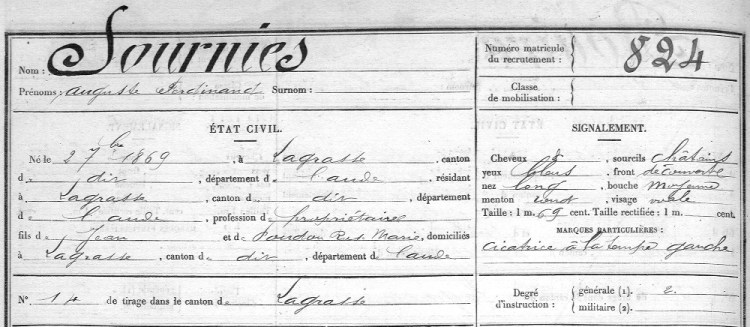 Nom : Sournies
Prénoms : Auguste Ferdinand Surnom :
Numéro matricule du recrutement : 824
Classe de mobilisation :
ÉTAT CIVIL.
Né le 2 7bre 1869, à Lagrasse, canton
d e dit, département d e l'aude, résidant
à Lagrasse, canton d u dit, département
d e l'aude, profession d e propriétaire
fils d e Jean et d e Marie, domiciliés
à Lagrasse, canton d u dit, département d e l'aude
N° 14 de tirage dans le canton d e Lagrasse
SIGNALEMENT.
Cheveux et, sourcils châtains
yeux bleus, front découvert
nez long, bouche moyenne
menton rond, visage ovale
Taille : 1 m. 69 cent. Taille rectifiée : 1 m. cent.
MARQUES PARTICULIÈRES :
cicatrice à la tempe gauche
Degré d'instruction : générale (1). 2.
militaire (2).